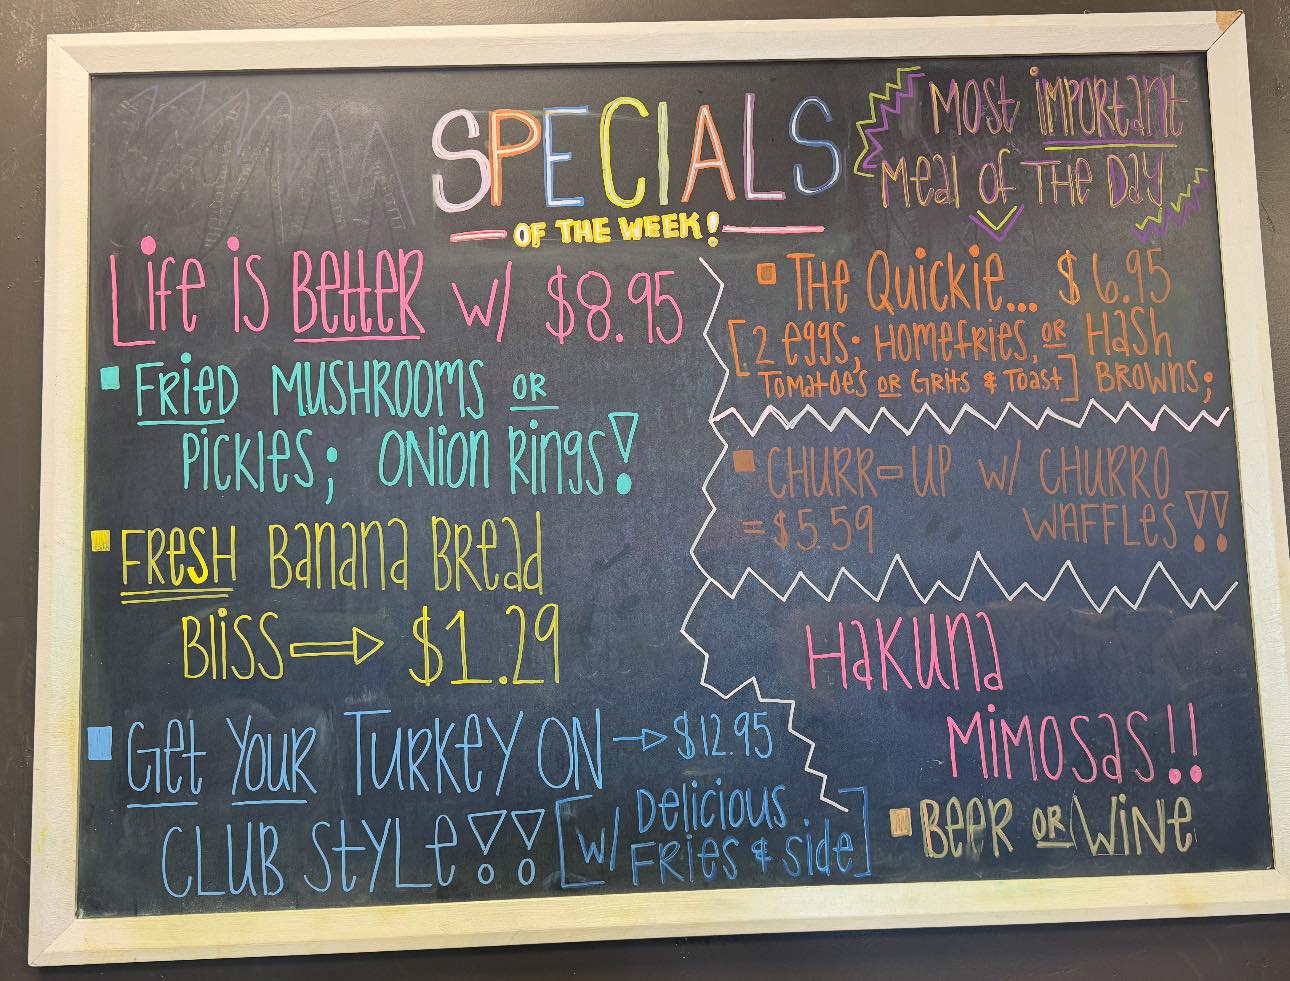 SPECIALS
OF THE WEEK!
Life is Better w/ $8.95
Fried Mushrooms or
Pickles; Onion Rings!
Fresh Banana Bread
Bliss → $1.29
Get Your Turkey On → $12.95
Club Style!! [w/ Delicious
Fries & side]
Most Important
Meal of The Day
The Quickie... $6.95
[2 eggs; Homefries, or Hash
Tomatoes or Grits & Toast] Browns;
Churr-up w/ Churro
=$5.59 Waffles!!
Hakuna
Mimosas!!
Beer or Wine